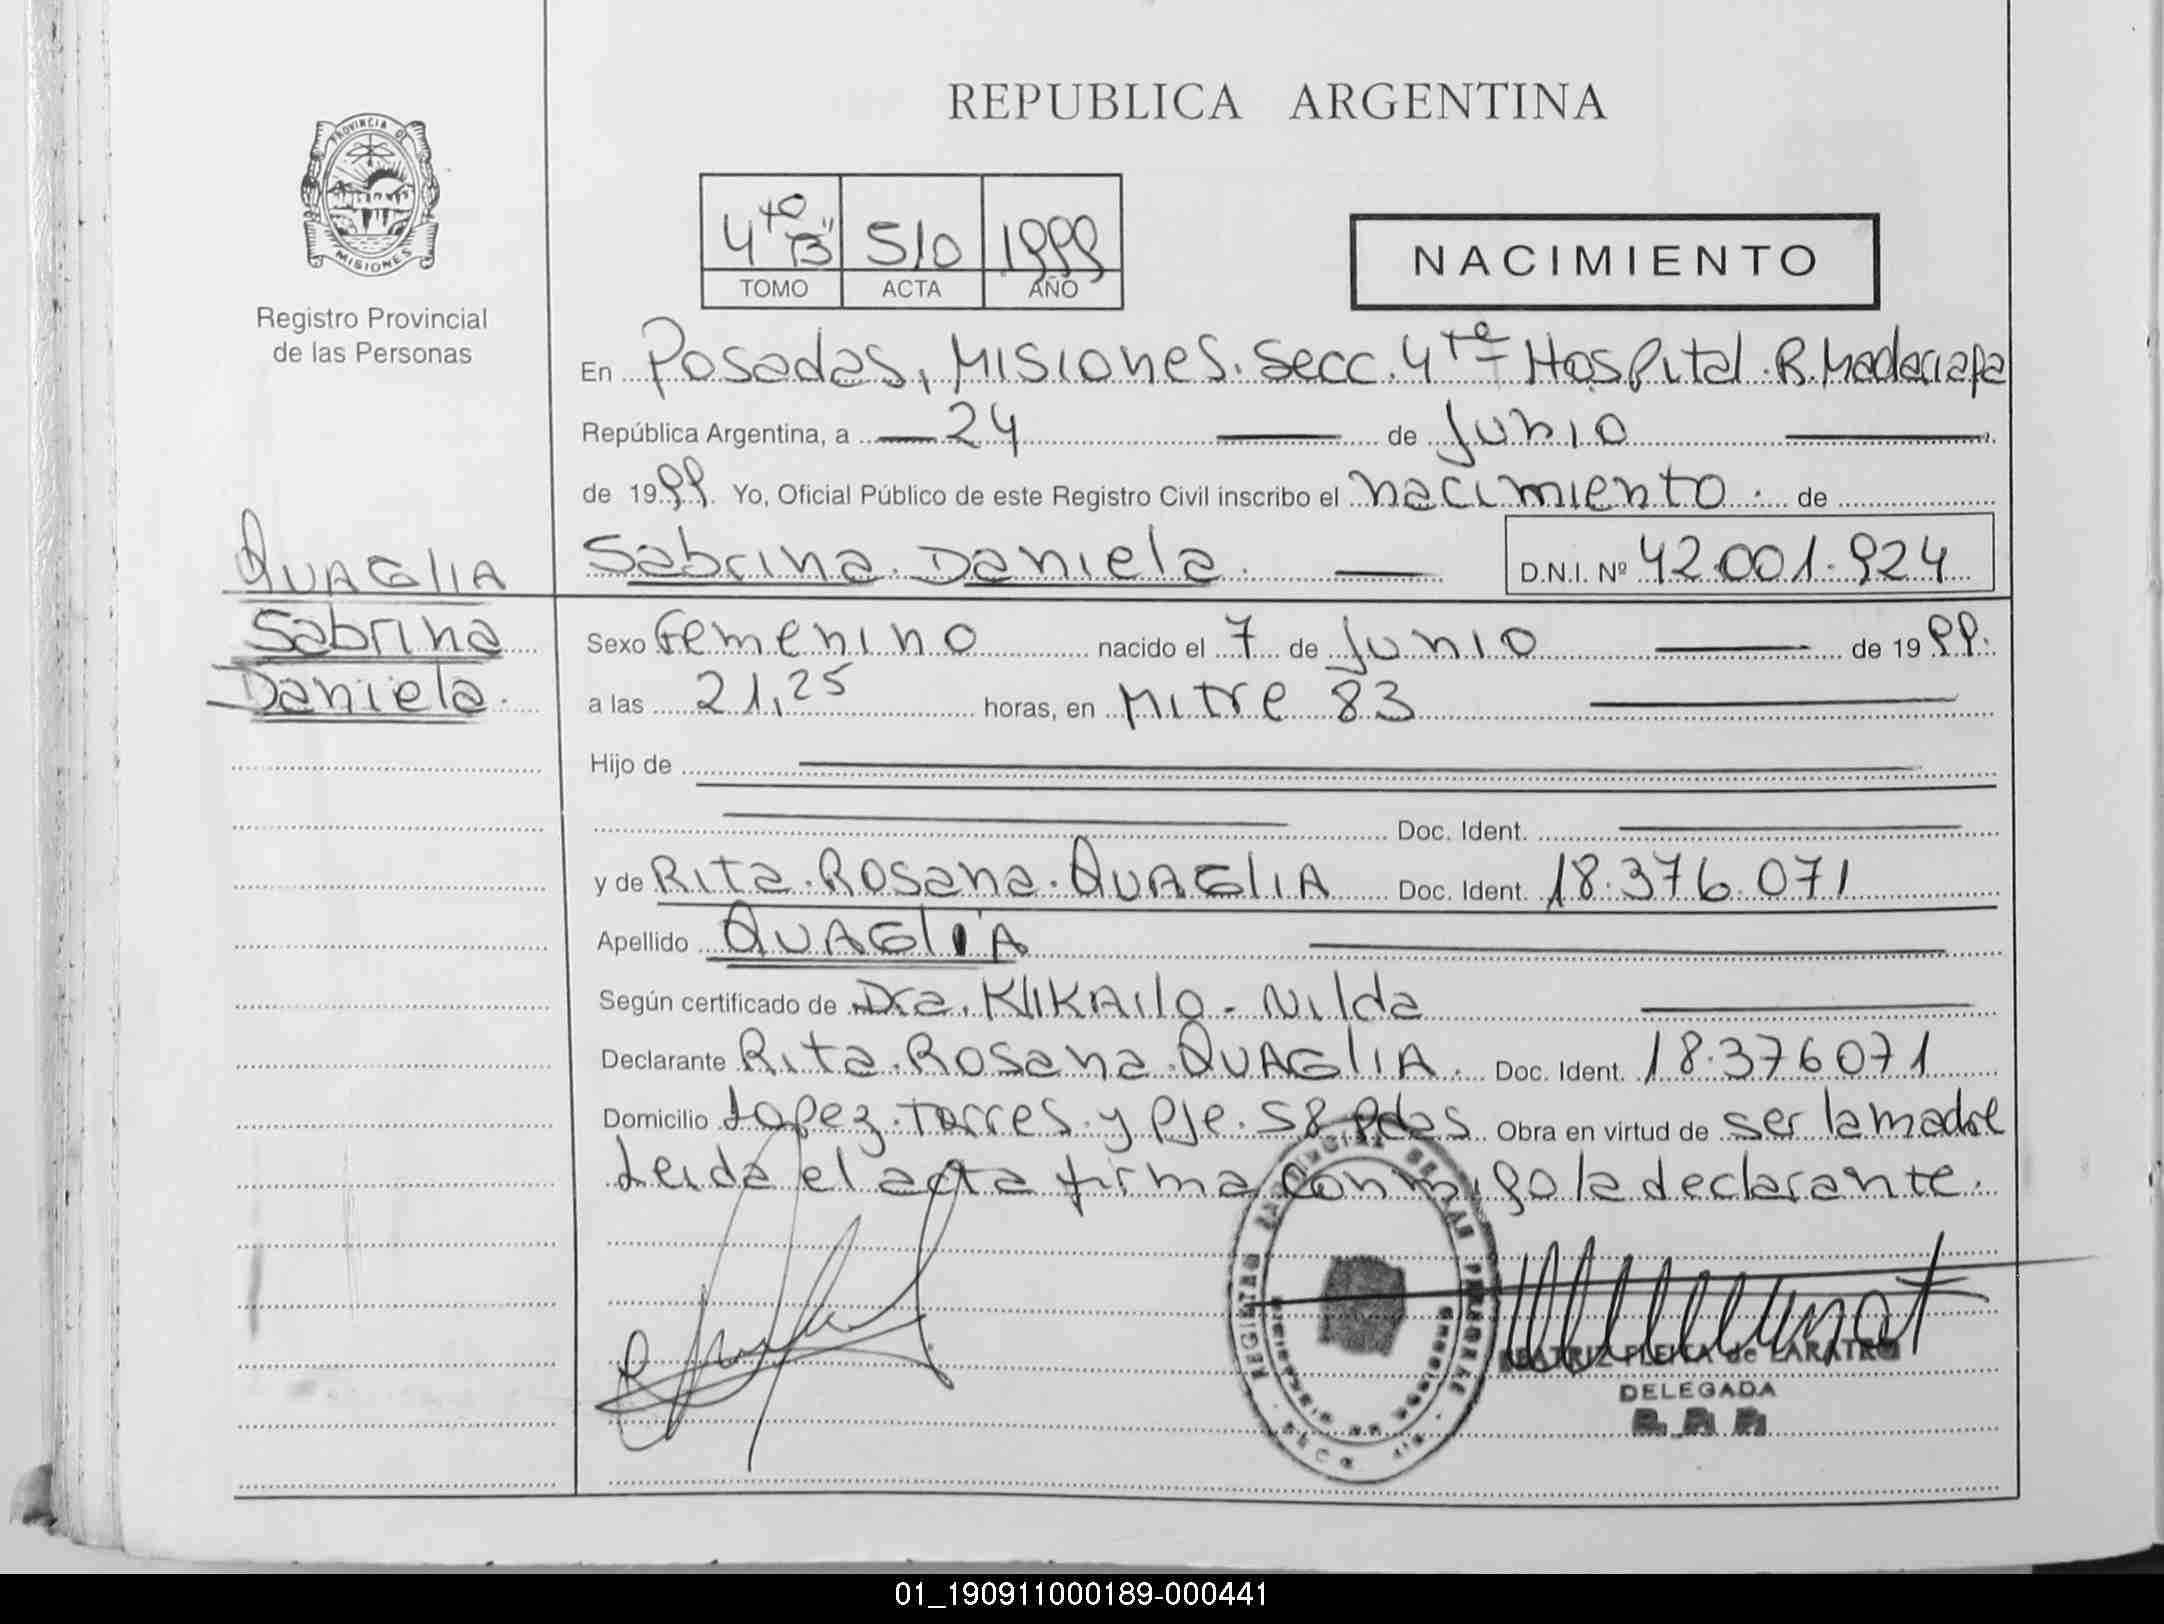 REPUBLICA ARGENTINA
PROVINCIA DE
MISIONES
Registro Provincial
de las Personas
4to "B" 510 1999
TOMO ACTA AÑO
NACIMIENTO
En Posadas, Misiones. Secc. 4ta Hospital. R. Madariaga
República Argentina, a 24 de Junio
de 1999. Yo, Oficial Público de este Registro Civil inscribo el nacimiento. de
Sabrina. Daniela. D.N.I. Nº 42.001.924
QUAGLIA
Sabrina
Daniela.
Sexo Femenino nacido el 7 de Junio de 1999.
a las 21,25 horas, en Mitre 83
Hijo de
Doc. Ident.
y de Rita. Rosana. QUAGLIA Doc. Ident. 18.376.071
Apellido QUAGLIA
Según certificado de Dra. KLIKAILO - Nilda
Declarante Rita. Rosana. QUAGLIA. Doc. Ident. 18.376071
Domicilio Lopez. Torres. y Pje. 58 Pdas Obra en virtud de ser la madre
Leida el acta firma conmigo la declarante.
REGISTRO DE LAS PERSONAS
BEATRIZ de LARATRO
DELEGADA
R. P. P.
01_190911000189-000441